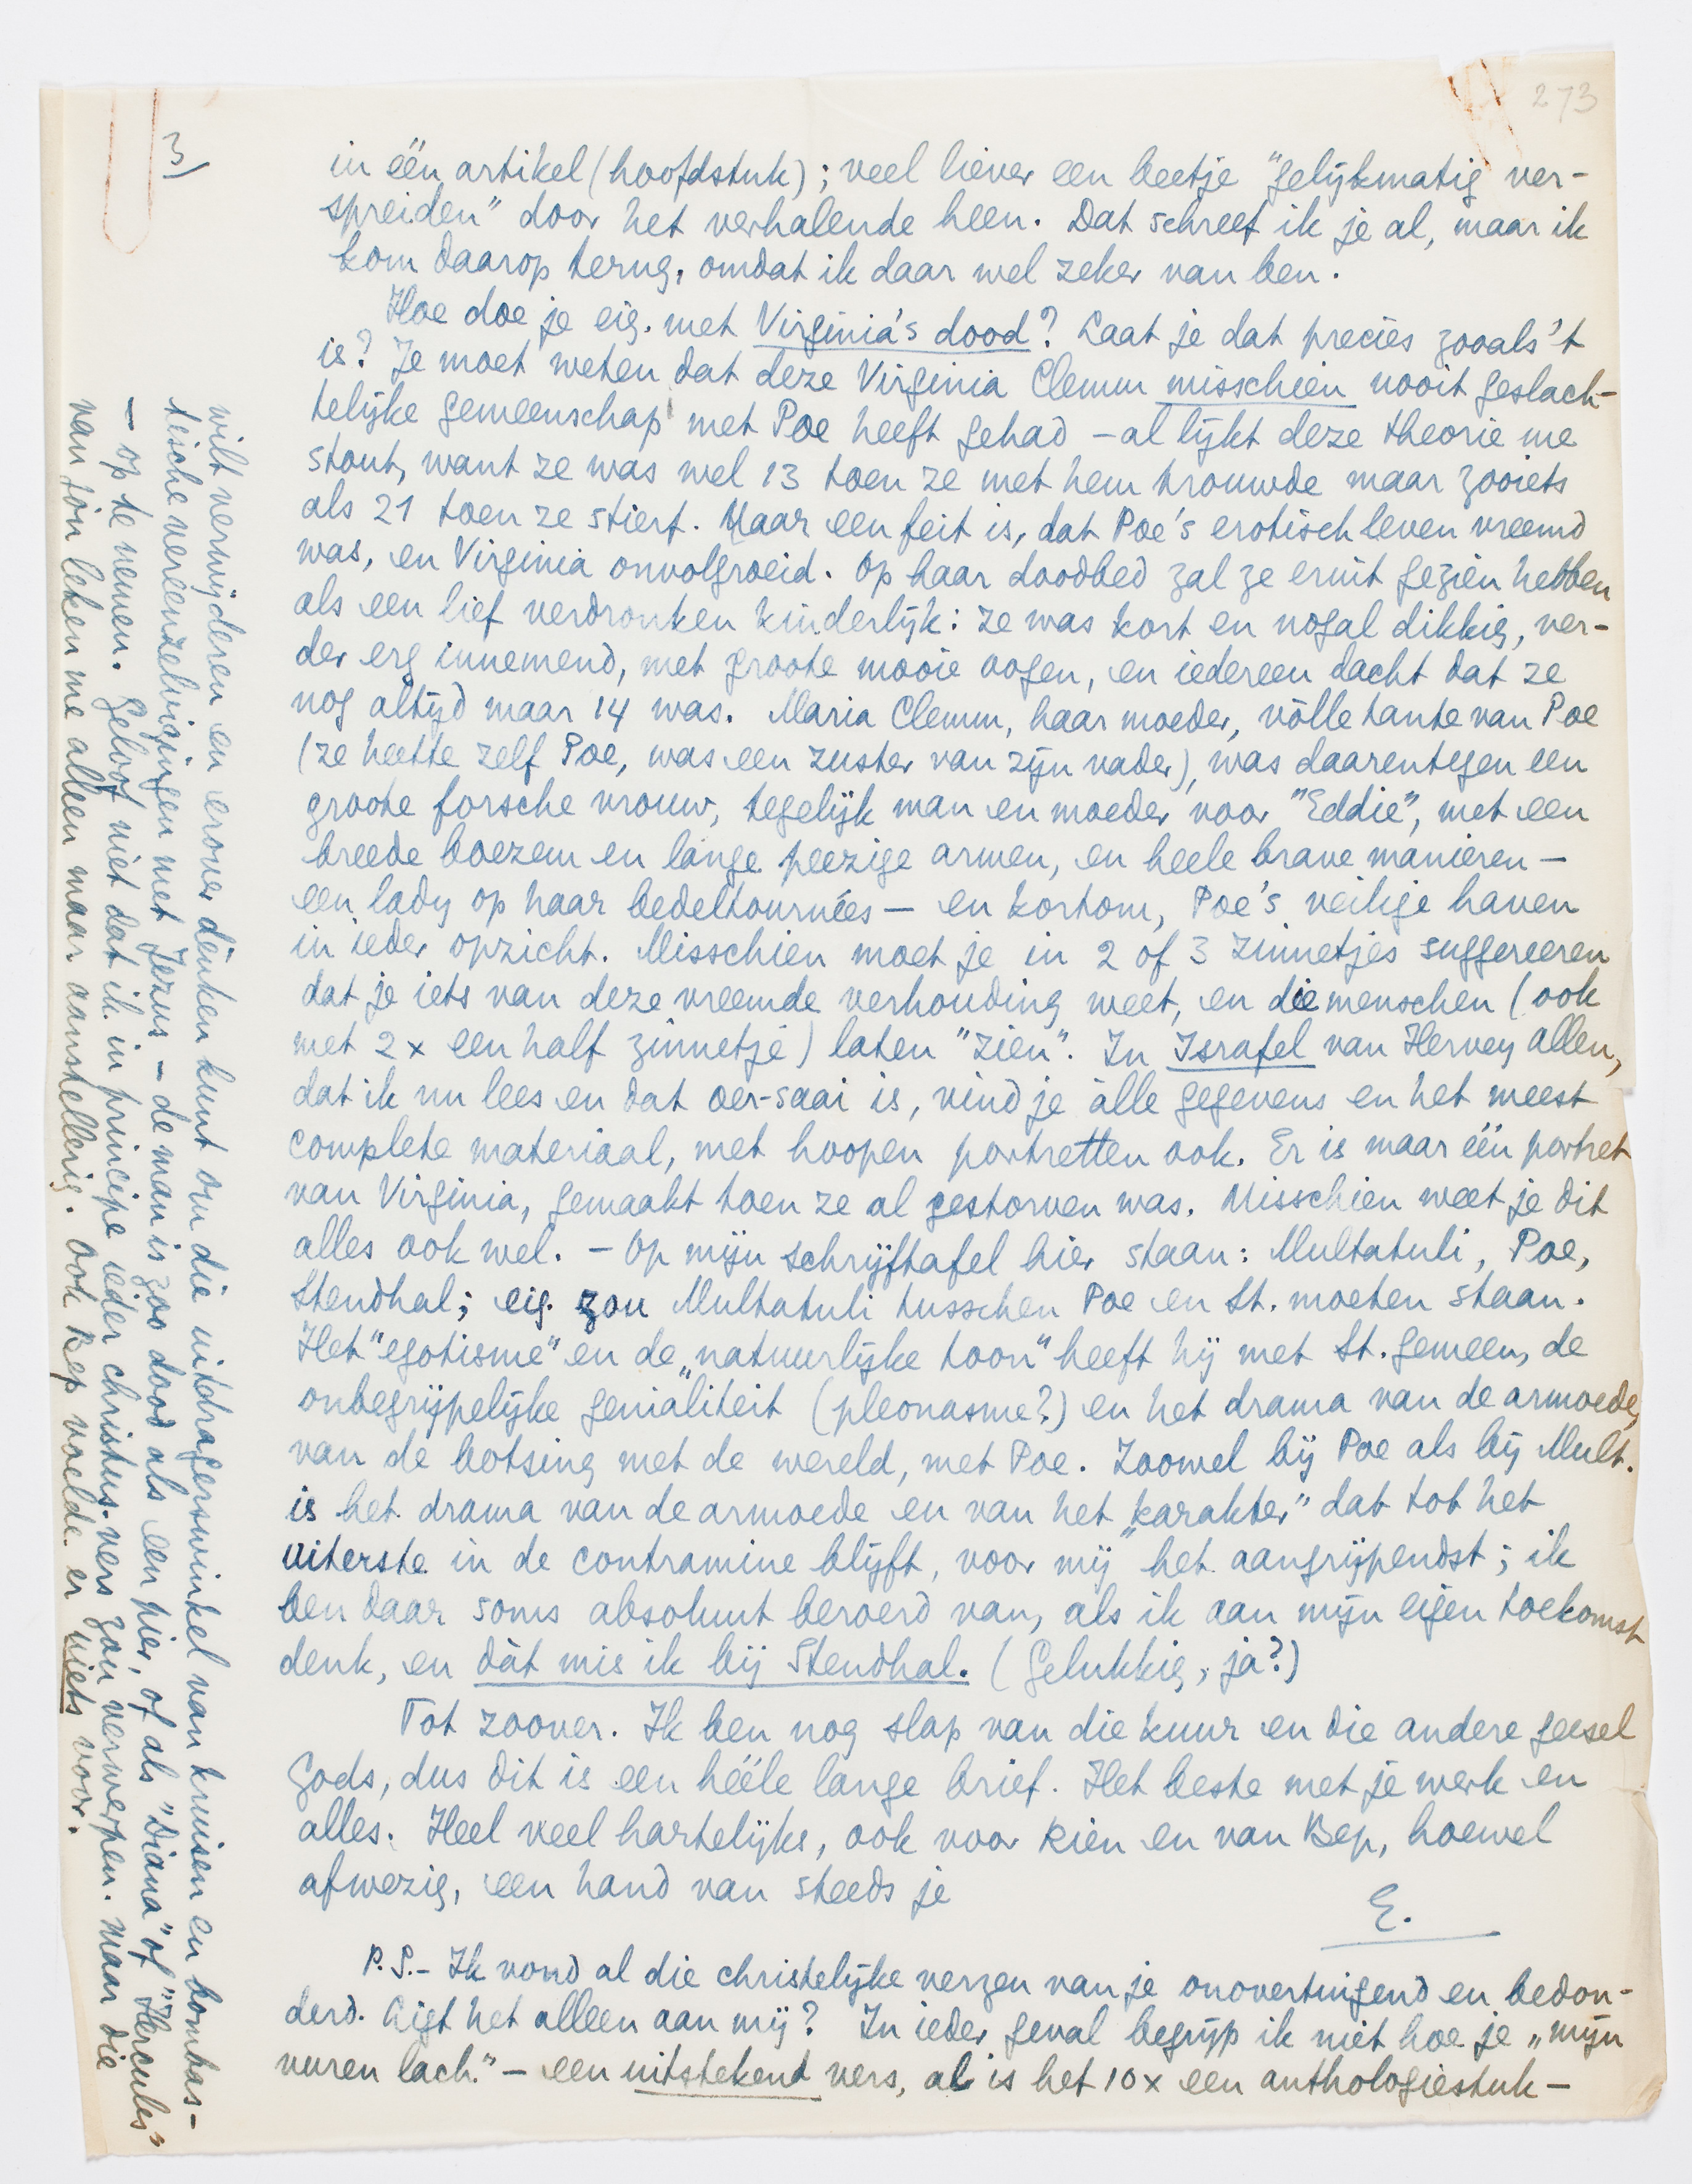 273
3)
in één artikel (hoofdstuk); veel liever een beetje "gelijkmatig ver-
spreiden" door het verhalende heen. Dat schreef ik je al, maar ik
kom daarop terug, omdat ik daar wel zeker van ben.
Hoe doe je eig. met Virginia's dood? Laat je dat precies zooals 't
is? Je moet weten dat deze Virginia Clemm misschien nooit geslach-
telijke gemeenschap met Poe heeft gehad – al lijkt deze theorie me
stout, want ze was wel 13 toen ze met hem trouwde maar zooiets
als 21 toen ze stierf. Maar een feit is, dat Poe's erotisch leven vreemd
was, en Virginia onvolgroeid. Op haar doodbed zal ze eruit gezien hebben
als een lief verdronken kinderlijk: ze was kort en nogal dikkig, ver-
der erg innemend, met groote mooie oogen, en iedereen dacht dat ze
nog altijd maar 14 was. Maria Clemm, haar moeder, vòlle tante van Poe
(ze heette zelf Poe, was een zuster van zijn vader), was daarentegen een
groote forsche vrouw, tegelijk man en moeder voor "Eddie", met een
breede boezem en lange peezige armen, en heele brave manieren –
een lady op haar bedeltournées – en kortom, Poe's veilige haven
in ieder opzicht. Misschien moet je in 2 of 3 zinnetjes suggereeren
dat je iets van deze vreemde verhouding weet, en die menschen (ook
met 2 x een half zinnetje) laten "zien". In Israfel van Hervey Allen,
dat ik nu lees en dat oer-saai is, vind je àlle gegevens en het meest
complete materiaal, met hoopen portretten ook. Er is maar één portret
van Virginia, gemaakt toen ze al gestorven was. Misschien weet je dit
alles ook wel. – Op mijn schrijftafel hier staan: Multatuli, Poe,
Stendhal; eig. zou Multatuli tusschen Poe en St. moeten staan.
Het "egotisme" en de "natuurlijke toon" heeft hij met St. gemeen, de
onbegrijpelijke genialiteit (pleonasme?) en het drama van de armoede,
van de botsing met de wereld, met Poe. Zoowel bij Poe als bij Mult.
is het drama van de armoede en van het "karakter" dat tot het
uiterste in de contramine blijft, voor mij het aangrijpendst; ik
ben daar soms absoluut beroerd van, als ik aan mijn eigen toekomst
denk, en dàt mis ik bij Stendhal. (Gelukkig, ja?)
Tot zoover. Ik ben nog slap van die kuur en die andere geesel
Gods, dus dit is een hééle lange brief. Het beste met je werk en
alles. Heel veel hartelijks, ook voor Rien en van Bep, hoewel
afwezig, een hand van steeds je
E.
P.S. – Ik vond al die christelijke verzen van je onovertuigend en bedon-
derd. Ligt het alleen aan mij? In ieder geval begrijp ik niet hoe je "mijn
vuren lach" – een uitstekend vers, al is het 10 x een anthologiestuk –
wilt verwijderen en erover dènken kunt om die uitdragerswinkel van kruisen en bombas-
tische vereenzelvigingen met Jezus – de man is zoo dood als een pier, of als "Diana" of "Hercules"
– op te nemen. Geloof niet dat ik in principe ieder christus-vers zou verwerpen. Maar die
van jou leken me alleen maar aanstellerig. Ook Bep voelde er niets voor.